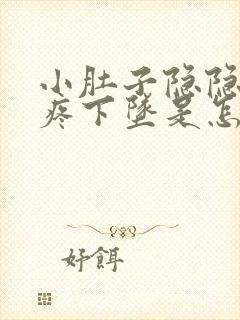 小肚子隐隐
疼下坠是怎
好餌